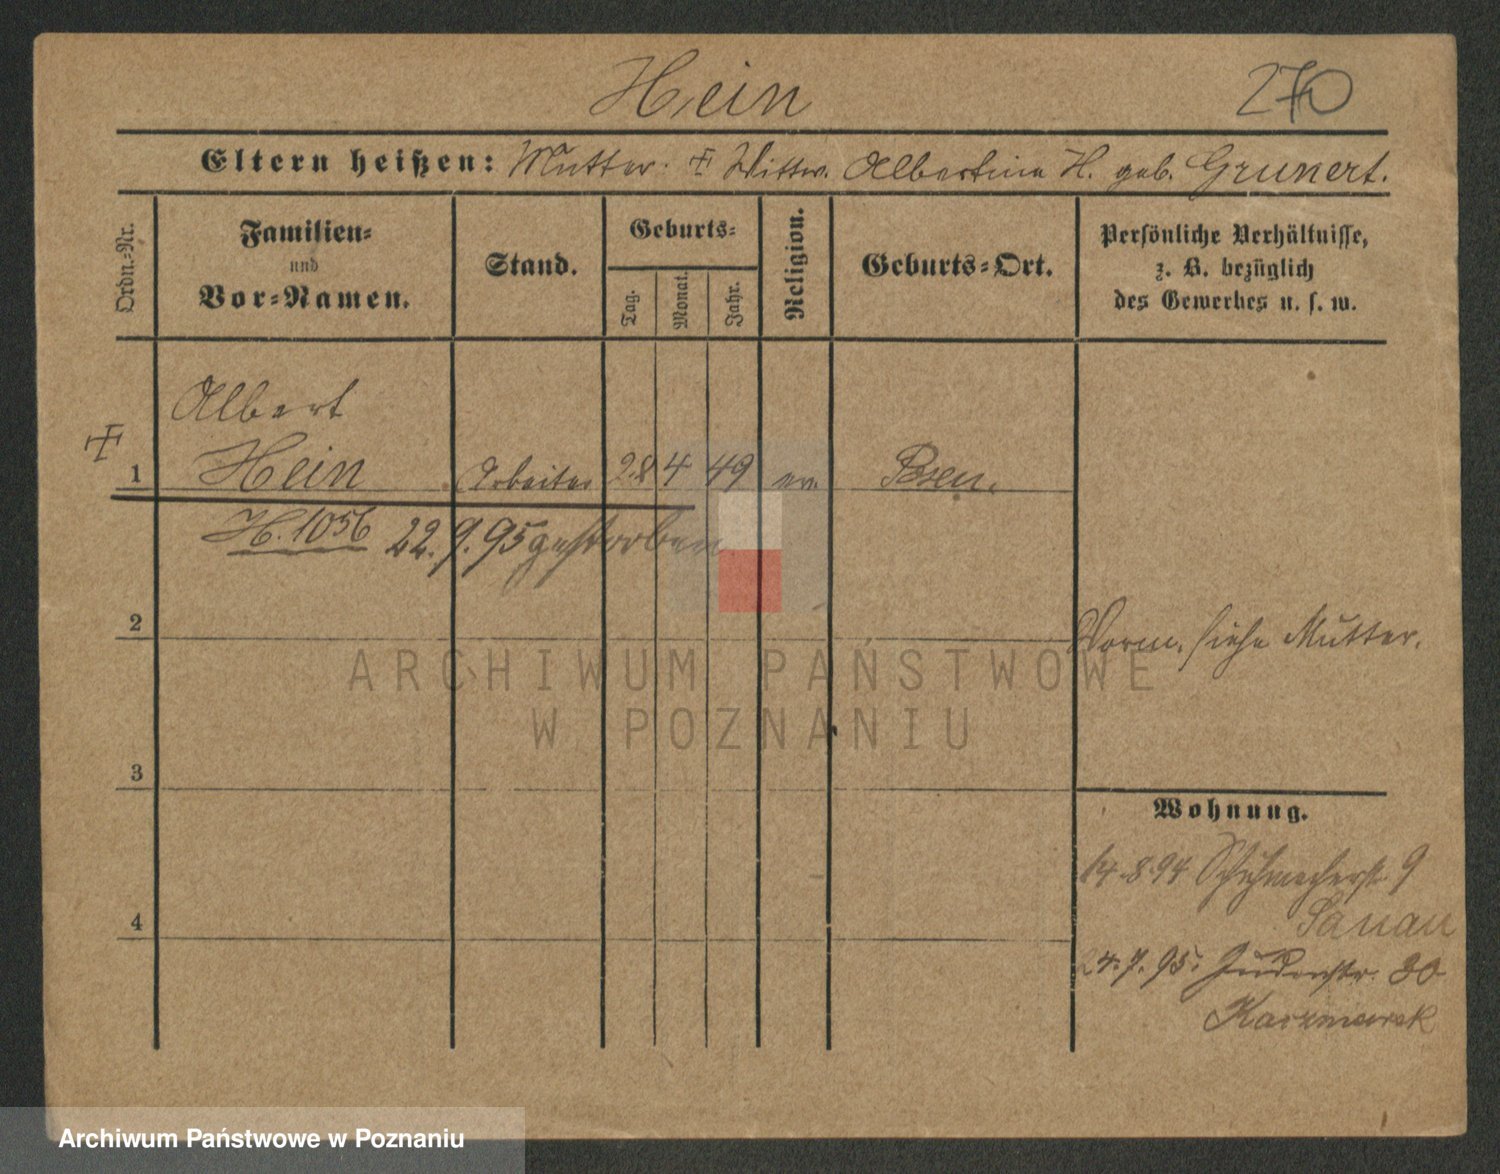 Hein
270
Eltern heißen: Mutter: ┼ Wittw. Albertine H. geb. Grunert.
Ordn.-Nr.
Familien-
und
Vor-Namen.
Stand.
Geburts-
Tag.
Monat.
Jahr.
Religion.
Geburts-Ort.
Persönliche Verhältnisse,
z. B. bezüglich
des Gewerbes u. s. w.
Albert
1 Hein Arbeiter 28 4 49 ev. Posen.
H. 1056 22.9.95 gestorben
2
Vorm. siehe Mutter.
3
Wohnung.
14.8.94 Schuhmacherstr. 9
4
24.7.95. Judenstr. 30
Kaczmarek
ARCHIWUM PAŃSTWOWE
W POZNANIU
Archiwum Państwowe w Poznaniu